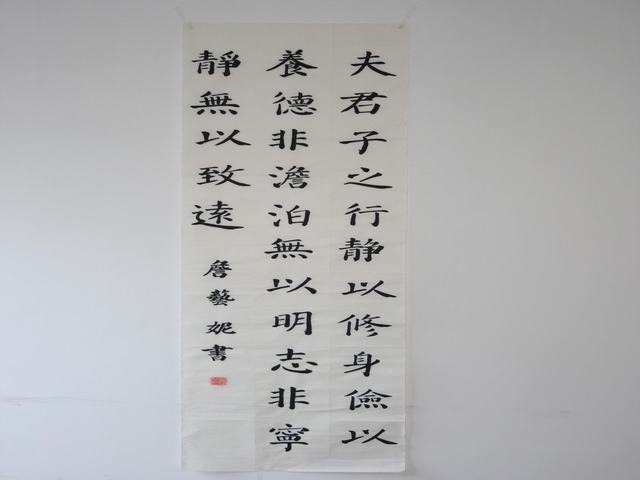 夫君子之行静以修身儉以
養德非澹泊無以明志非寧
靜無以致遠
詹藝妮書